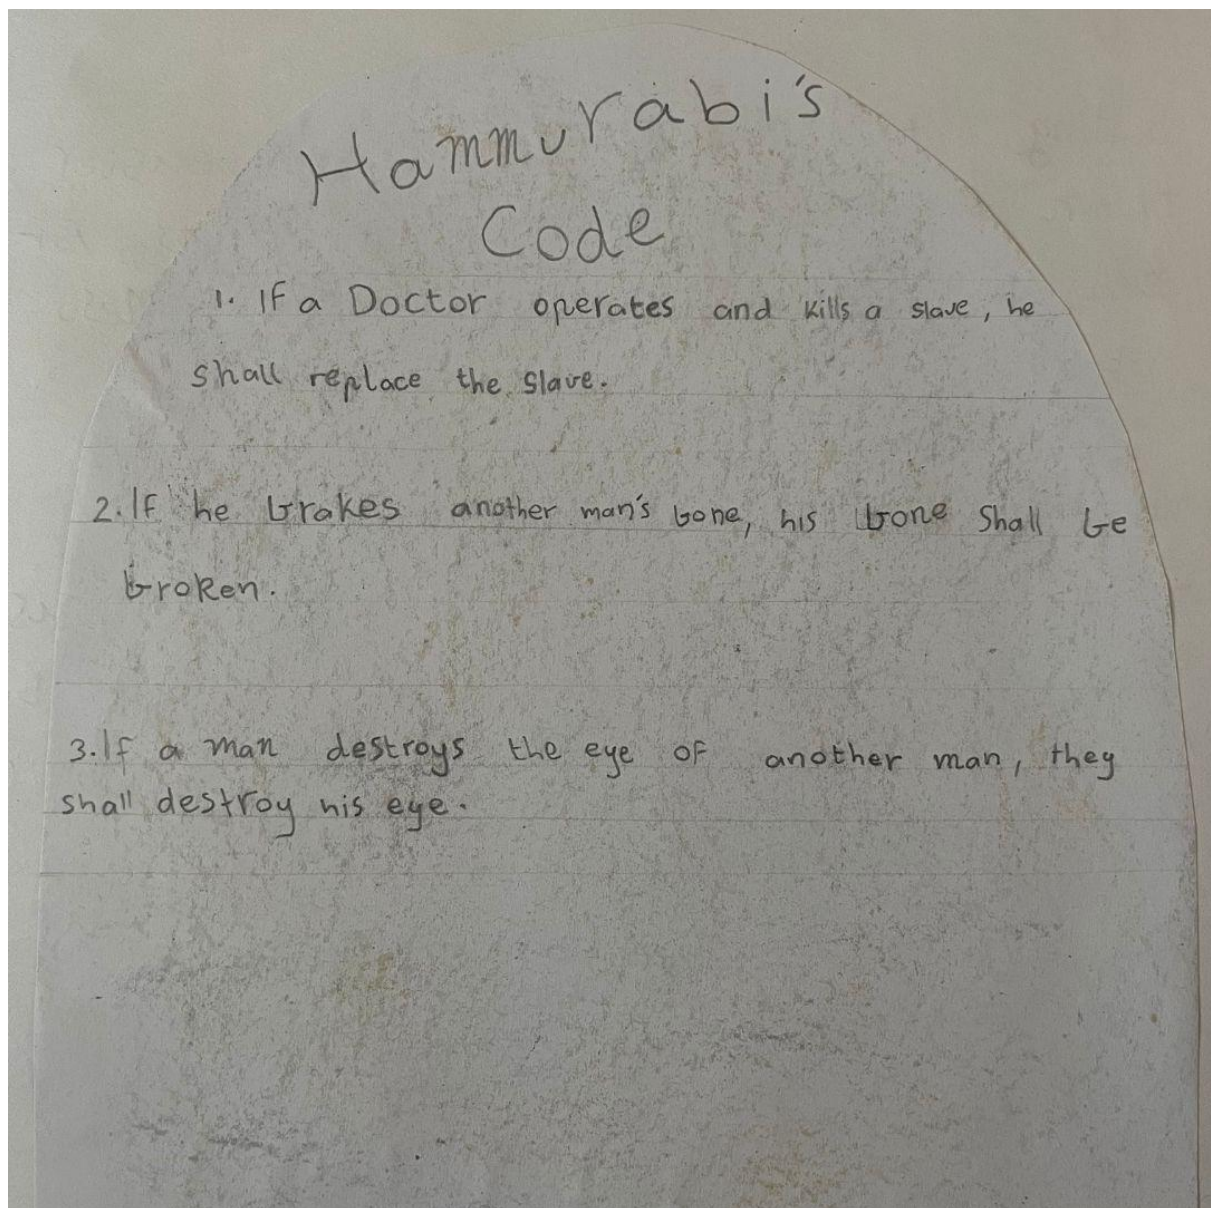 Hammurabi's
Code
1. If a Doctor operates and kills a slave, he
shall replace the slave.
2. If he brakes another man's bone, his bone shall be
broken.
3. If a man destroys the eye of another man, they
shall destroy his eye.